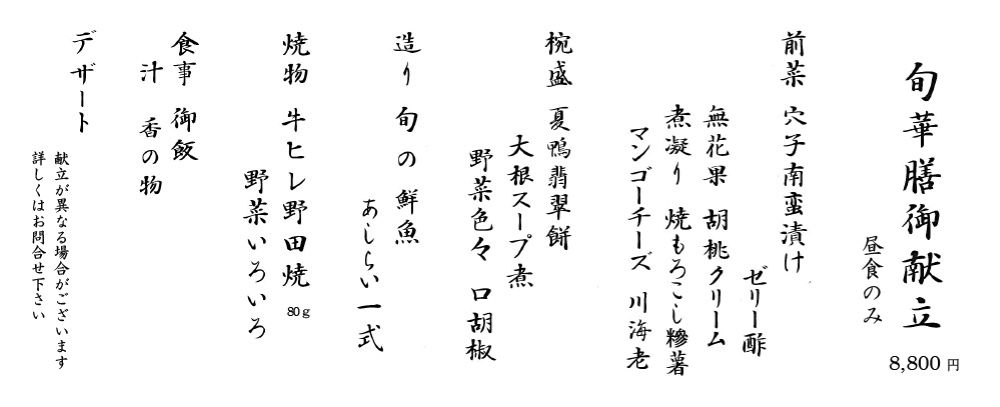 旬華膳御献立
昼食のみ
8,800 円
前菜 穴子南蛮漬け
ゼリー酢
無花果 胡桃クリーム
煮凝り 焼もろこし糝薯
マンゴーチーズ 川海老
椀盛 夏鴨翡翠餅
大根スープ煮
野菜色々 口胡椒
造り 旬の鮮魚
あしらい一式
焼物 牛ヒレ野田焼 80g
野菜いろいろ
食事 御飯
汁 香の物
デザート
献立が異なる場合がございます
詳しくはお問合せ下さい